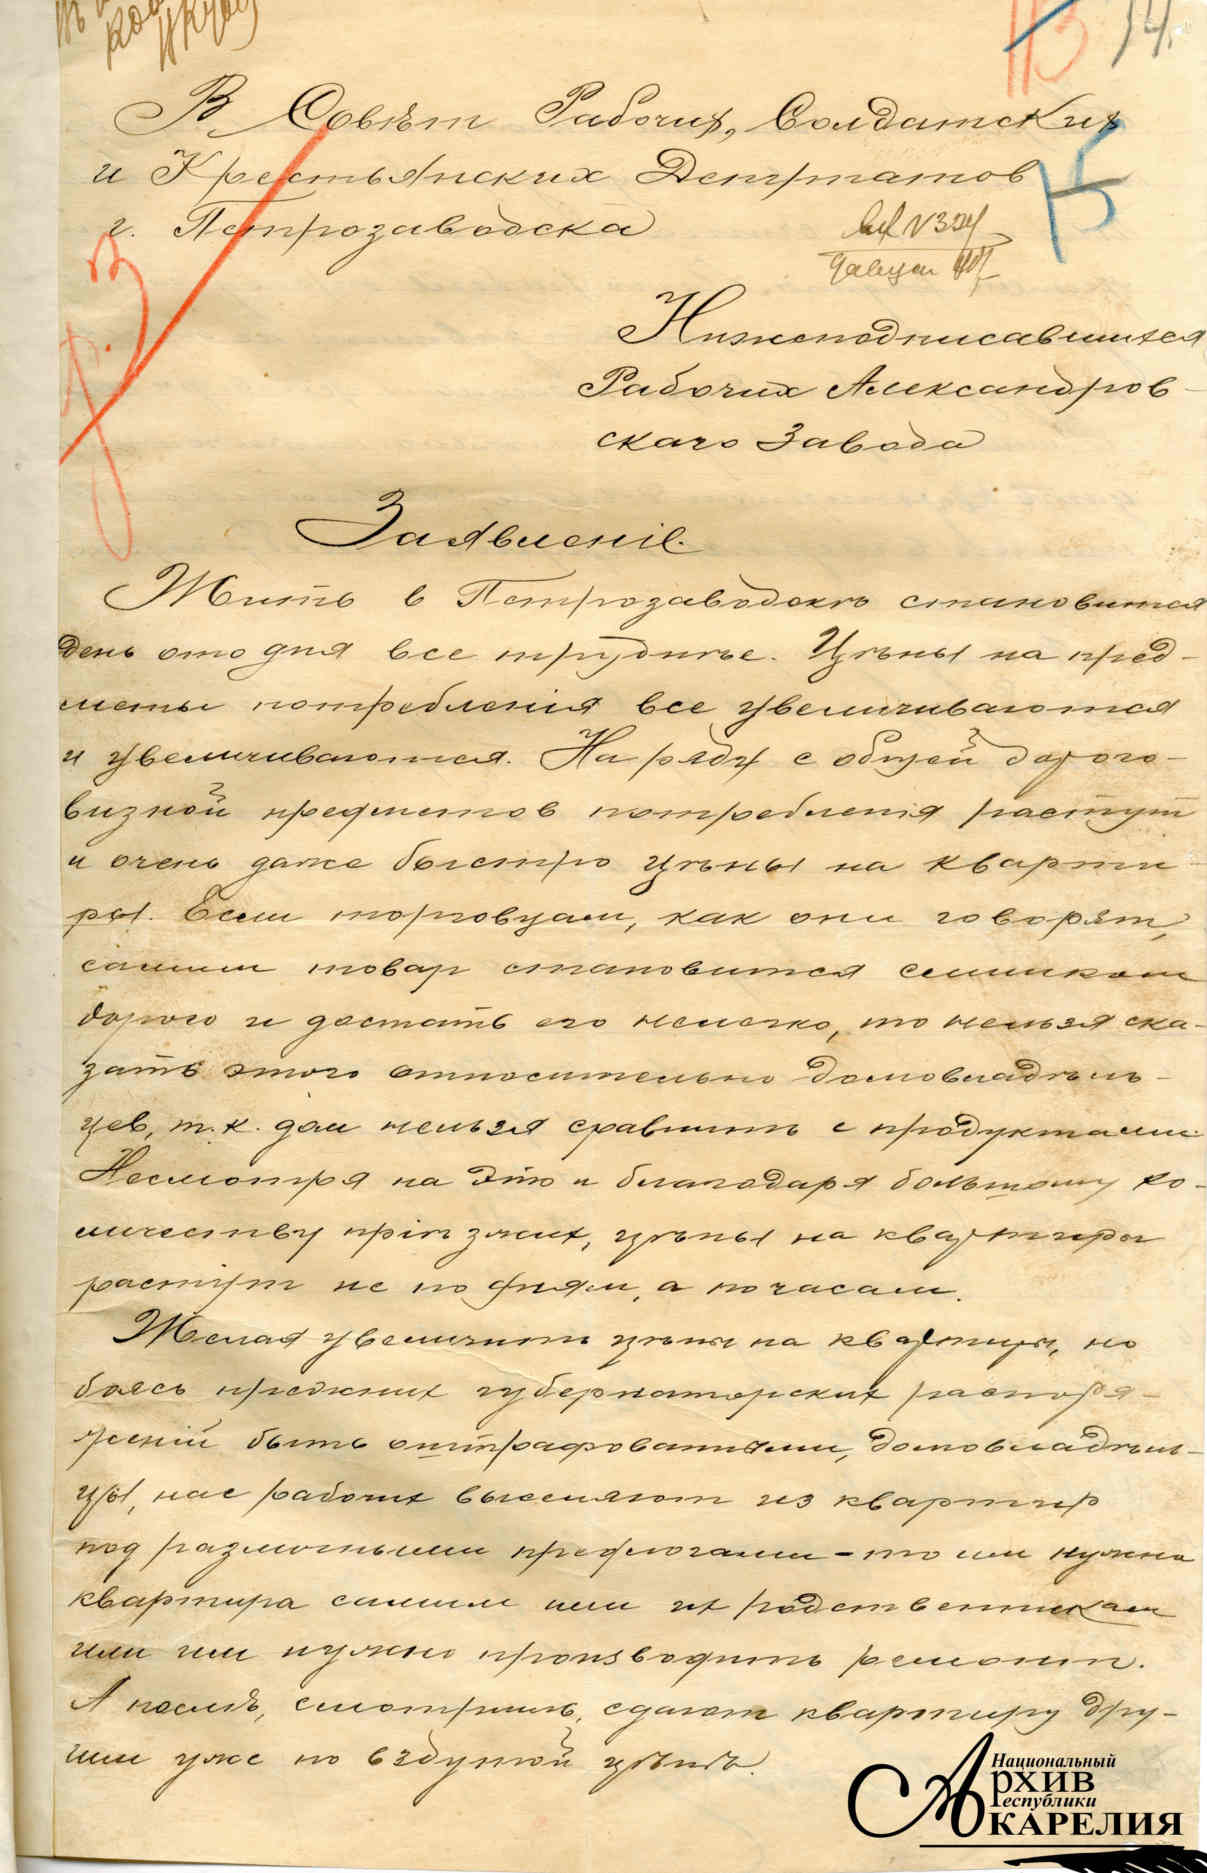 113 14.
В Совѣт Рабочих, Солдатских
и Крестьянских Депутатов
г. Петрозаводска
Нижеподписавшихся
Рабочих Александров-
скаго Завода
Заявленіе.
Жить в Петрозаводскѣ становится
день ото дня все труднѣе. Цѣны на пред-
меты потребленія все увеличиваются
и увеличиваются. На ряду с общей дорого-
визной предметов потребленія растут
и очень даже быстро цѣны на кварти-
ры. Если торговцам, как они говорят,
самим товар становится слишком
дорого и достать его нелегко, то нельзя ска-
зать этого относительно домовладѣль-
цев, т.к. дом нельзя сравнить с продуктами.
Несмотря на это и благодаря большому ко-
личеству пріѣзжих, цѣны на квартиры
растут не по дням, а по часам.
Желая увеличить цѣны на квартиры, но
боясь прежних губернаторских распоря-
женій быть оштрафованными, домовладѣль-
цы, нас рабочих выселяют из квартир
под различными предлогами - то им нужна
квартира самим или их родственникам
или им нужно производить ремонт.
А послѣ, смотришь, сдают квартиру дру-
гим уже по вздутой цѣнѣ.
Национальный
Архив
Республики
Карелия